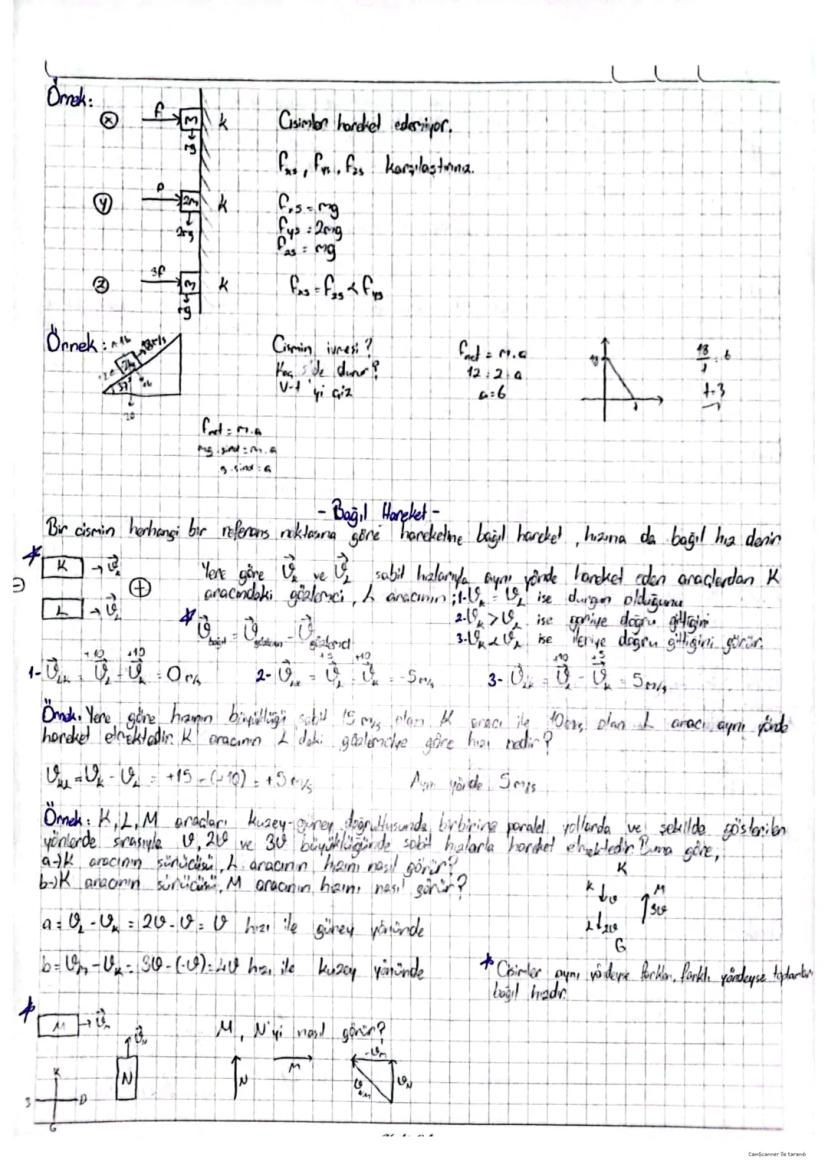 Örnek:
x F m k Cisimler hareket edemiyor.
mg
Fxs, Fys, Fzs karşılaştırınız.
y F 2m k Fxs = mg
2mg Fys = 2mg
Fzs = mg
z 3F m k Fxs = Fzs < Fys
mg
Örnek: Cismin ivmesi? Fnet = m.a
Kaç s'de durur? 12 = 2.a
V-t 'yi çiz a=6
37°
20
18
t=3
Fnet = m.a
mg.sinα = m.a
g.sinα = a
- Bağıl Hareket -
Bir cismin herhangi bir referans noktasına göre hareketine bağıl hareket, hızına da bağıl hız denir
K
Yere göre ve sabit hızlarıyla aynı yönde hareket eden araçlardan K
L aracındaki gözlemci, L aracının; 1- ise durgun olduğunu
2- ise geriye doğru gittiğini
3- ise ileriye doğru gittiğini görür.
1- 0 m/s 2- -5 m/s 3- 5 m/s
Örnek: Yere göre hızının büyüklüğü sabit 15 m/s olan K aracı ile 10 m/s olan L aracı aynı yönde
hareket etmektedir. K aracının L deki gözlemciye göre hızı nedir?
= +15 - (+10) = +5 m/s Aynı yönde 5 m/s
Örnek: K, L, M araçları kuzey-güney doğrultusunda, birbirine paralel yollarda ve şekilde gösterilen
yönlerde sırasıyla υ, 2υ ve 3υ büyüklüğünde sabit hızlarla hareket etmektedir. Buna göre,
a-) K aracının sürücüsü, L aracının hızını nasıl görür?
b-) K aracının sürücüsü, M aracının hızını nasıl görür?
K
K υ M
3υ
L 2υ
G
a = υL - υK = 2υ - υ = υ hızı ile güney yönünde
b = υM - υK = 3υ - (-υ) = 4υ hızı ile kuzey yönünde
* Cisimler aynı yöndeyse farkları, farklı yöndeyse toplamları
bağıl hızdır.
M M, N'yi nasıl görür?
N N M
K
D
G
CamScanner ile tarandı